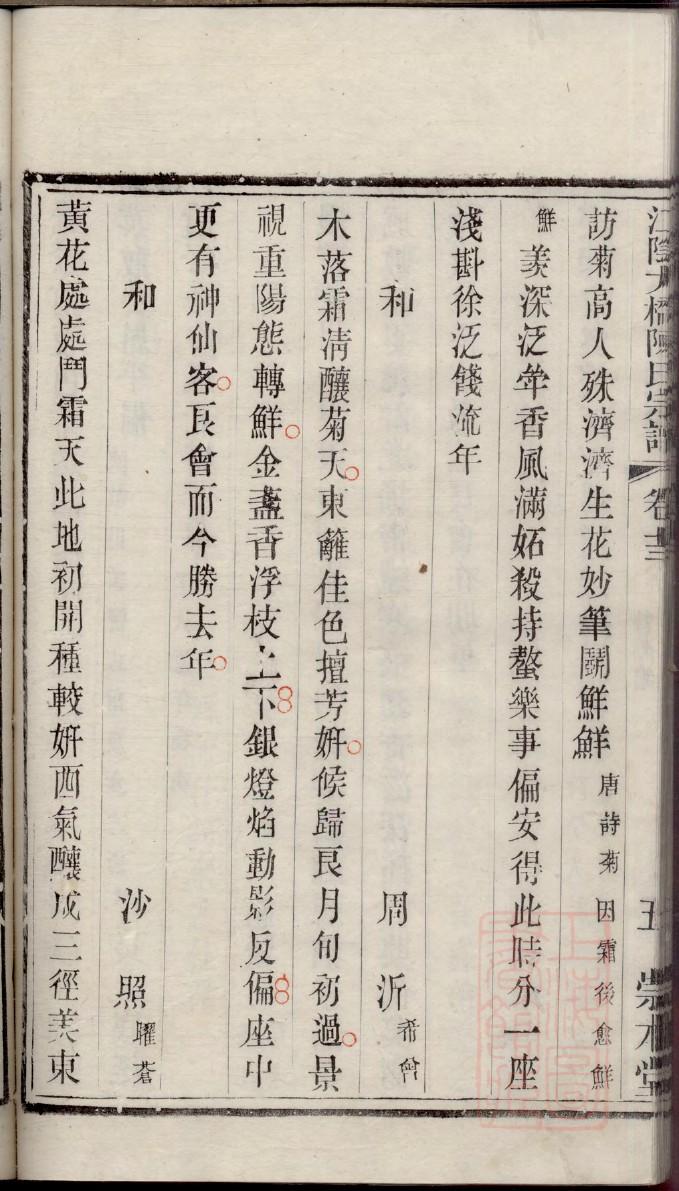 江陰大橋陳氏宗譜 卷十三 五 崇本堂
訪菊高人殊濟濟生花妙筆鬭鮮鮮唐詩菊因霜後愈鮮
鮮羙深泛斝香風滿妬殺持螯樂事偏安得此時分一座
淺斟徐泛餞流年
和 周沂希曾
木落霜清釀菊天東籬佳色擅芳姸候歸良月旬初過景
視重陽態轉鮮金盞香浮枝上下銀燈焰動影反偏座中
更有神仙客良會而今勝去年
和 沙照曜蒼
黃花處處鬥霜天此地初開種較姸酉氣釀成三徑美東